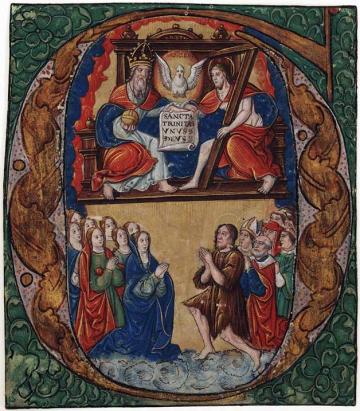 SANCTA
TRINITAS
VNVS
DEVS